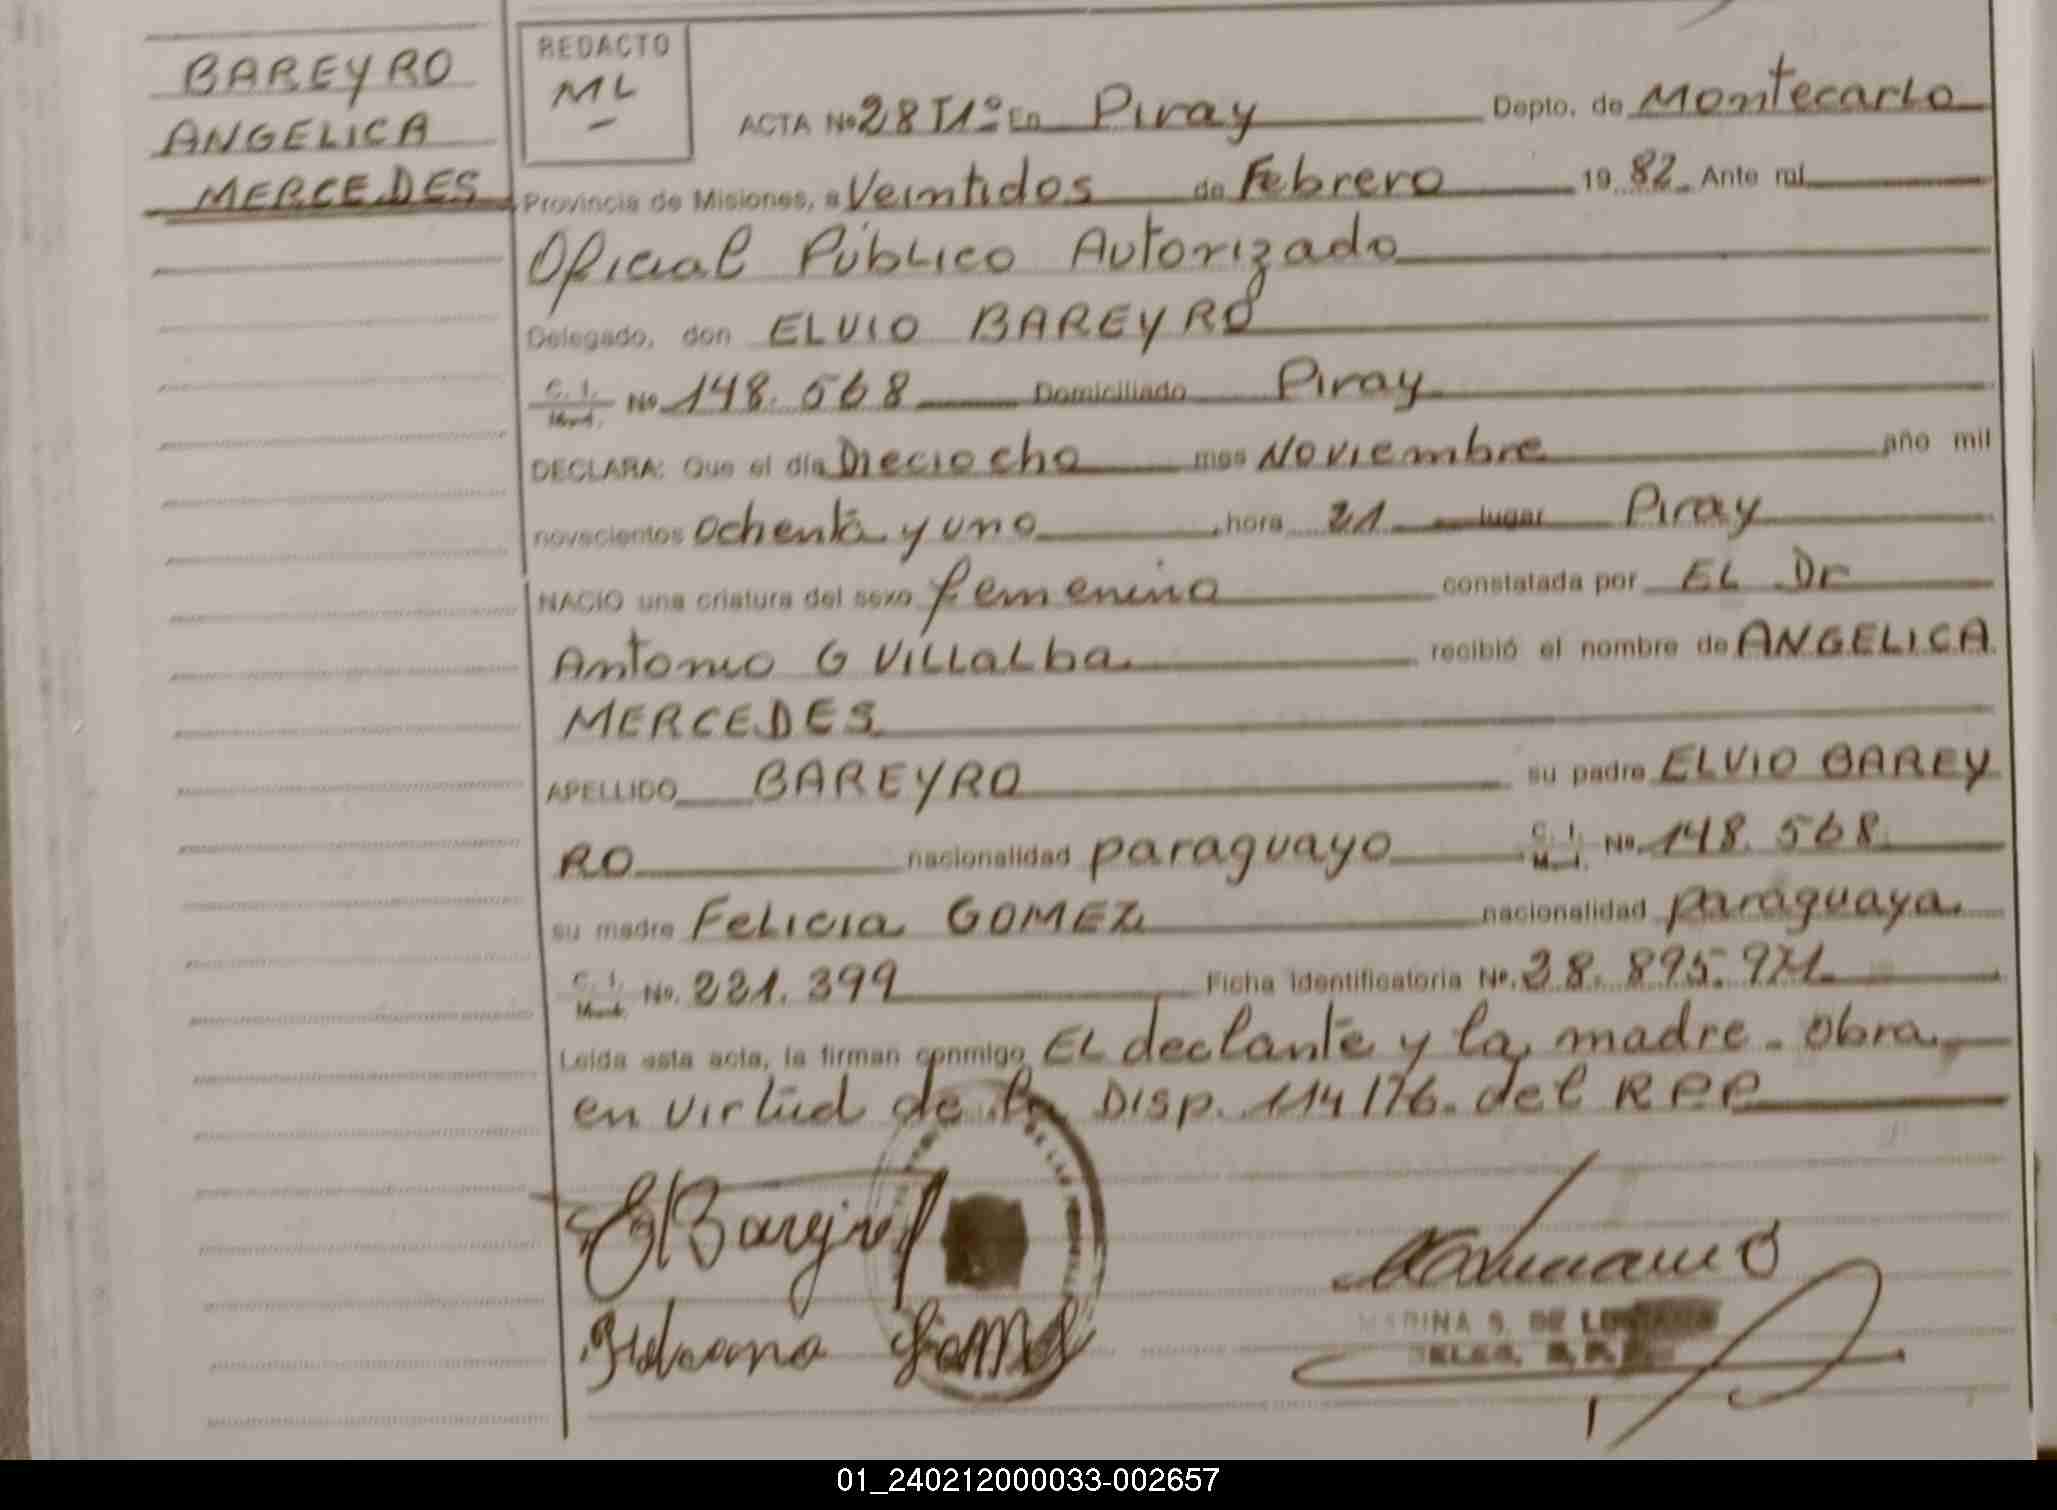 BAREYRO
ANGELICA
MERCEDES
REDACTO
ML
ACTA Nº 28 T1º En Piray Depto. de Montecarlo
Provincia de Misiones, a Veintidos de Febrero 19 82 Ante mí
Oficial Público Autorizado
Delegado, don ELVIO BAREYRO
C. I. Nº 148.568 Domiciliado Piray
DECLARA: Que el día Dieciocho mes Noviembre año mil
novecientos ochenta y uno hora 21 lugar Piray
NACIO una criatura del sexo femenino constatada por EL Dr
Antonio G Villalba recibió el nombre de ANGELICA
MERCEDES
APELLIDO BAREYRO su padre ELVIO BAREY
RO nacionalidad paraguayo C. I. Nº 148.568
su madre Felicia GOMEZ nacionalidad paraguaya
C. I. Nº 221.399 Ficha Identificatoria Nº 28.895.971
Leída esta acta, la firman conmigo EL declante y la madre. Obra
en virtud de la Disp. 114/76. del RPP
MARINA S. DE
01_240212000033-002657